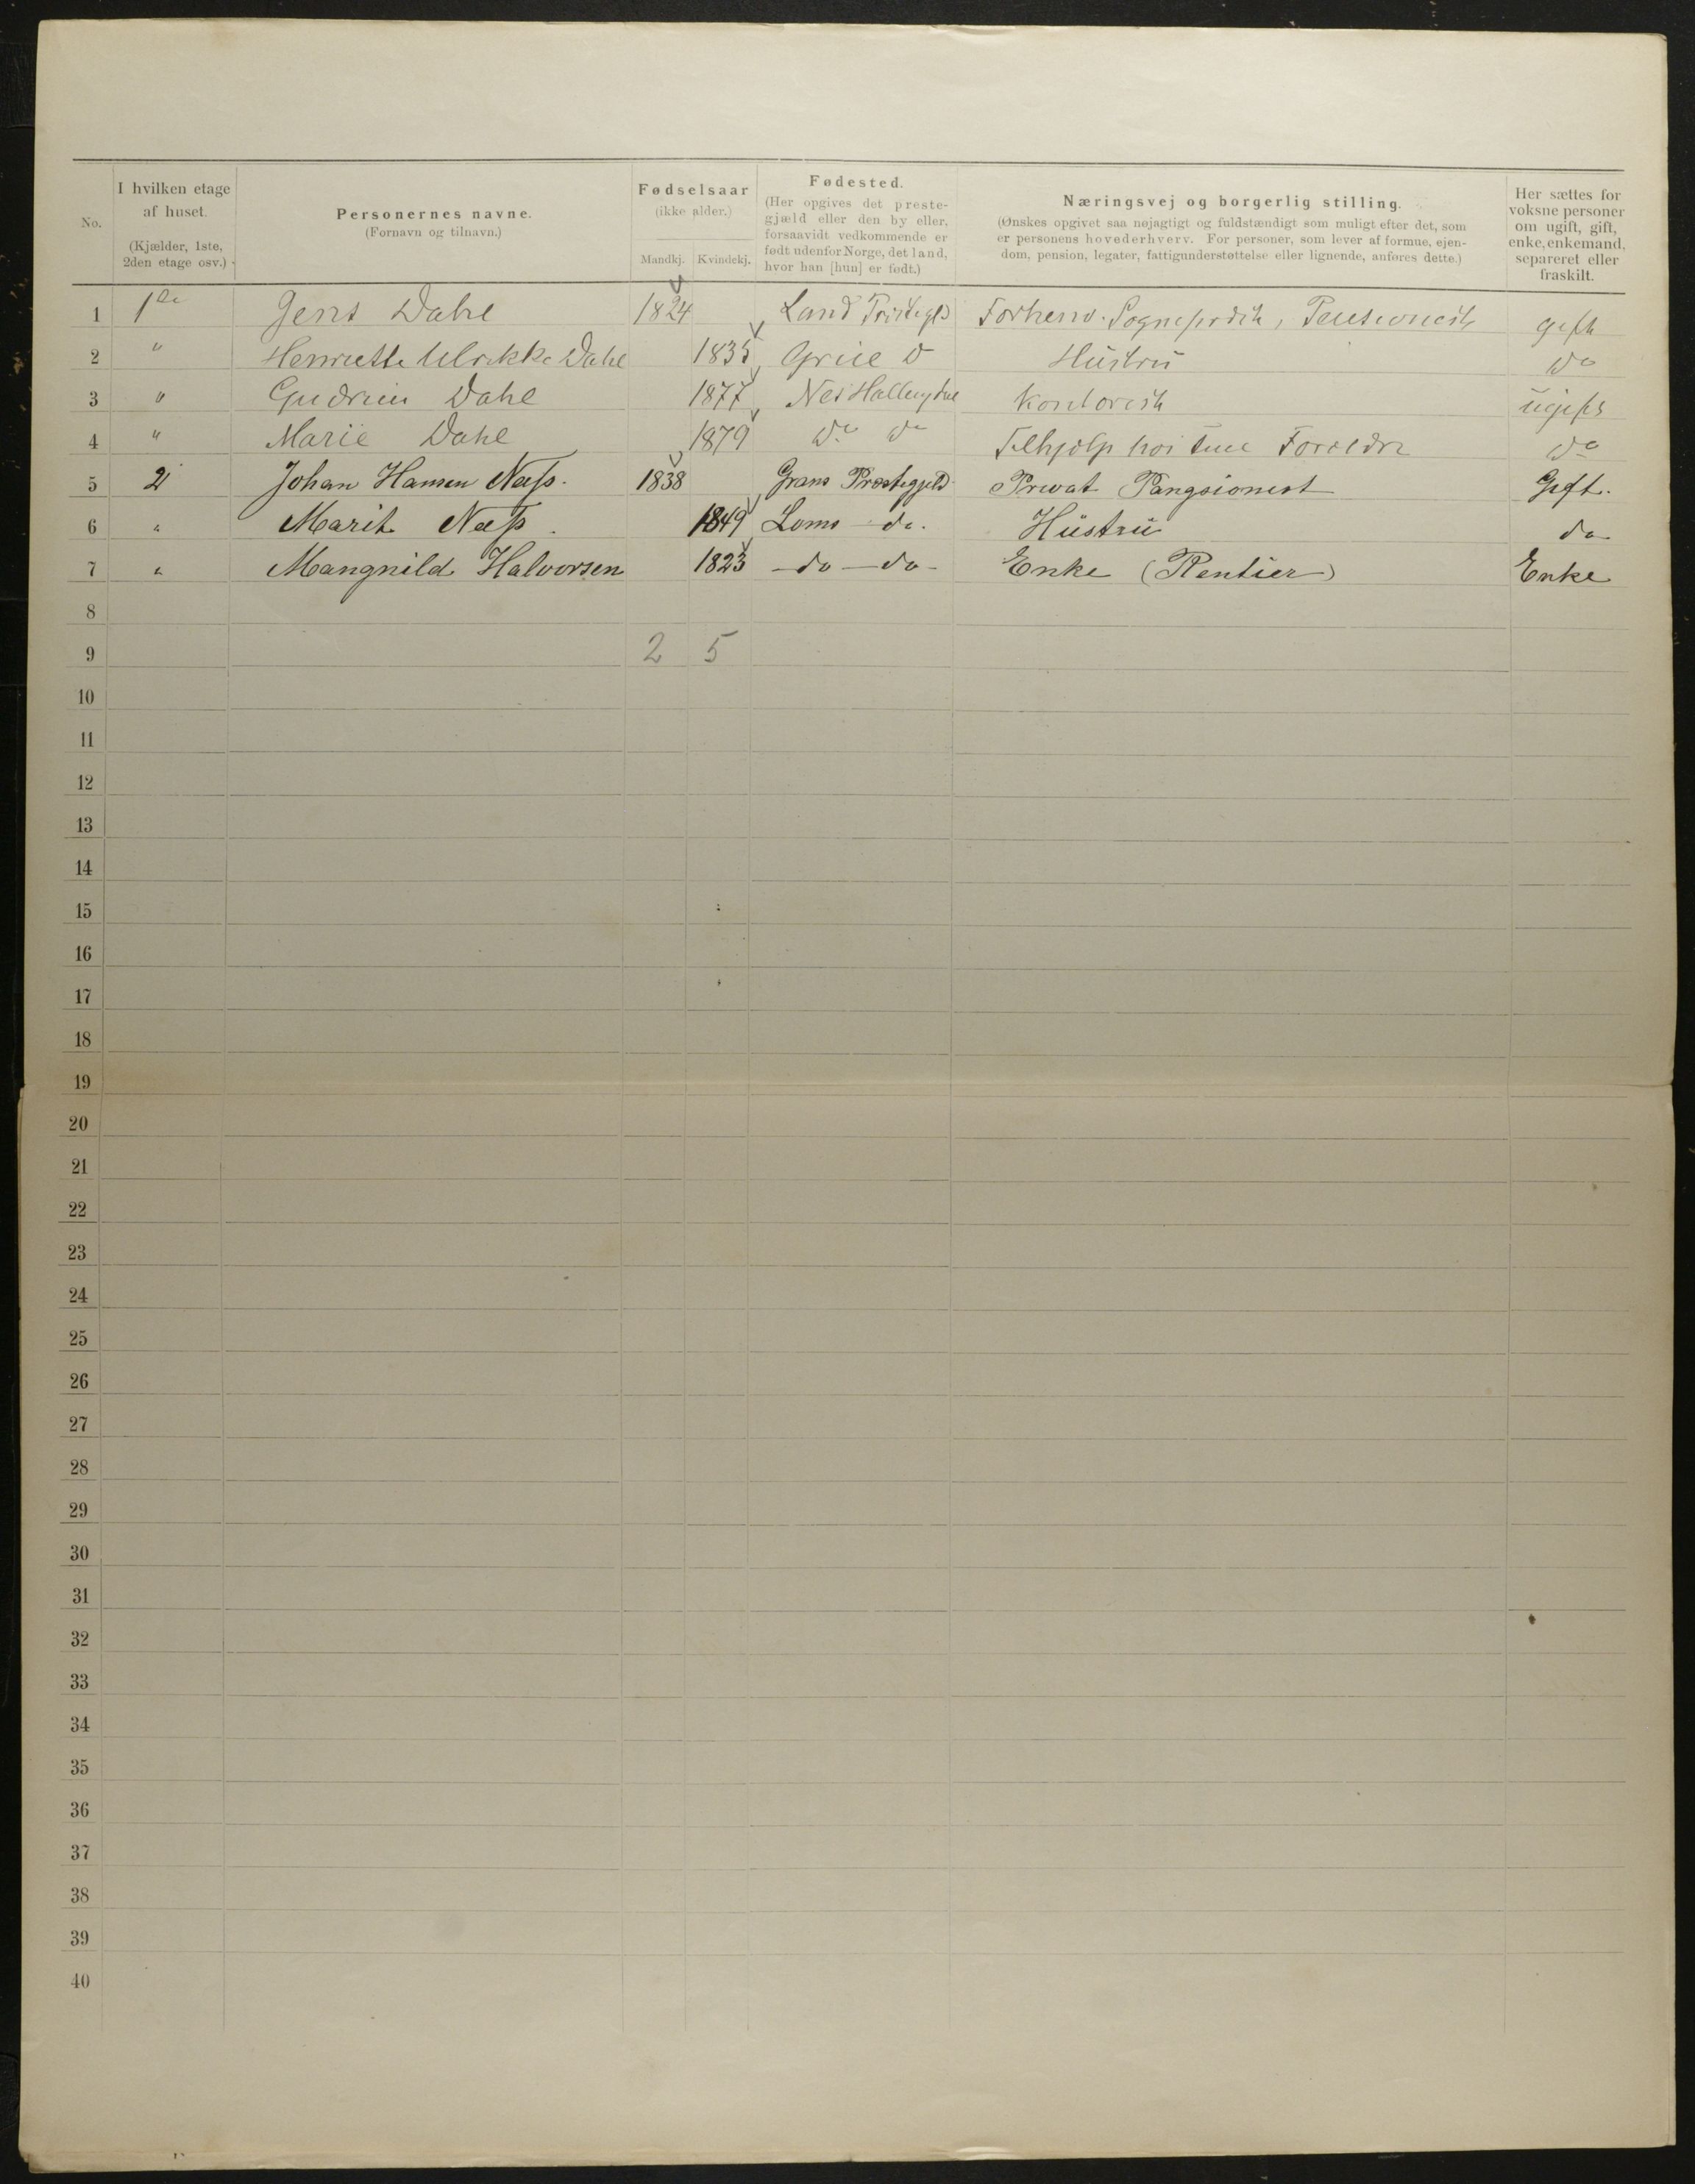 No.
I hvilken etage af huset.
(Kjælder, 1ste, 2den etage osv.)
Personernes navne.
(Fornavn og tilnavn.)
Fødselsaar
(ikke alder.)
Mandkj. Kvindekj.
Fødested.
(Her opgives det preste-
gjæld eller den by eller,
forsaavidt vedkommende er
født udenfor Norge, det land,
hvor han [hun] er født.)
Næringsvej og borgerlig stilling.
(Ønskes opgivet saa nøjagtigt og fuldstændigt som muligt efter det, som
er personens hovederhverv. For personer, som lever af formue, ejen-
dom, pension, legater, fattigunderstøttelse eller lignende, anføres dette.)
Her sættes for
voksne personer
om ugift, gift,
enke, enkemand,
separeret eller
fraskilt.
1 1ste Jens Dahl 1824 Land Forhenv. Sogneprest, Pensionist gift
2 " Henriette Ulrikke Dahl 1835 Grue Do Hustru Do
3 " Gudrun Dahl 1877 Nes Kontorist ugift
4 " Marie Dahl 1879 Do Do Tilhjelp hos sine Forældre Do
5 2 Johan Hansen Næss. 1838 Grans Præstegjeld Privat Pangsionist Gift.
6 " Marit Næss. 1849 Loms do. Hustru do
7 " Mangnild Halvorsen 1823 do do Enke (Rentier) Enke
8
9 2 5
10
11
12
13
14
15
16
17
18
19
20
21
22
23
24
25
26
27
28
29
30
31
32
33
34
35
36
37
38
39
40